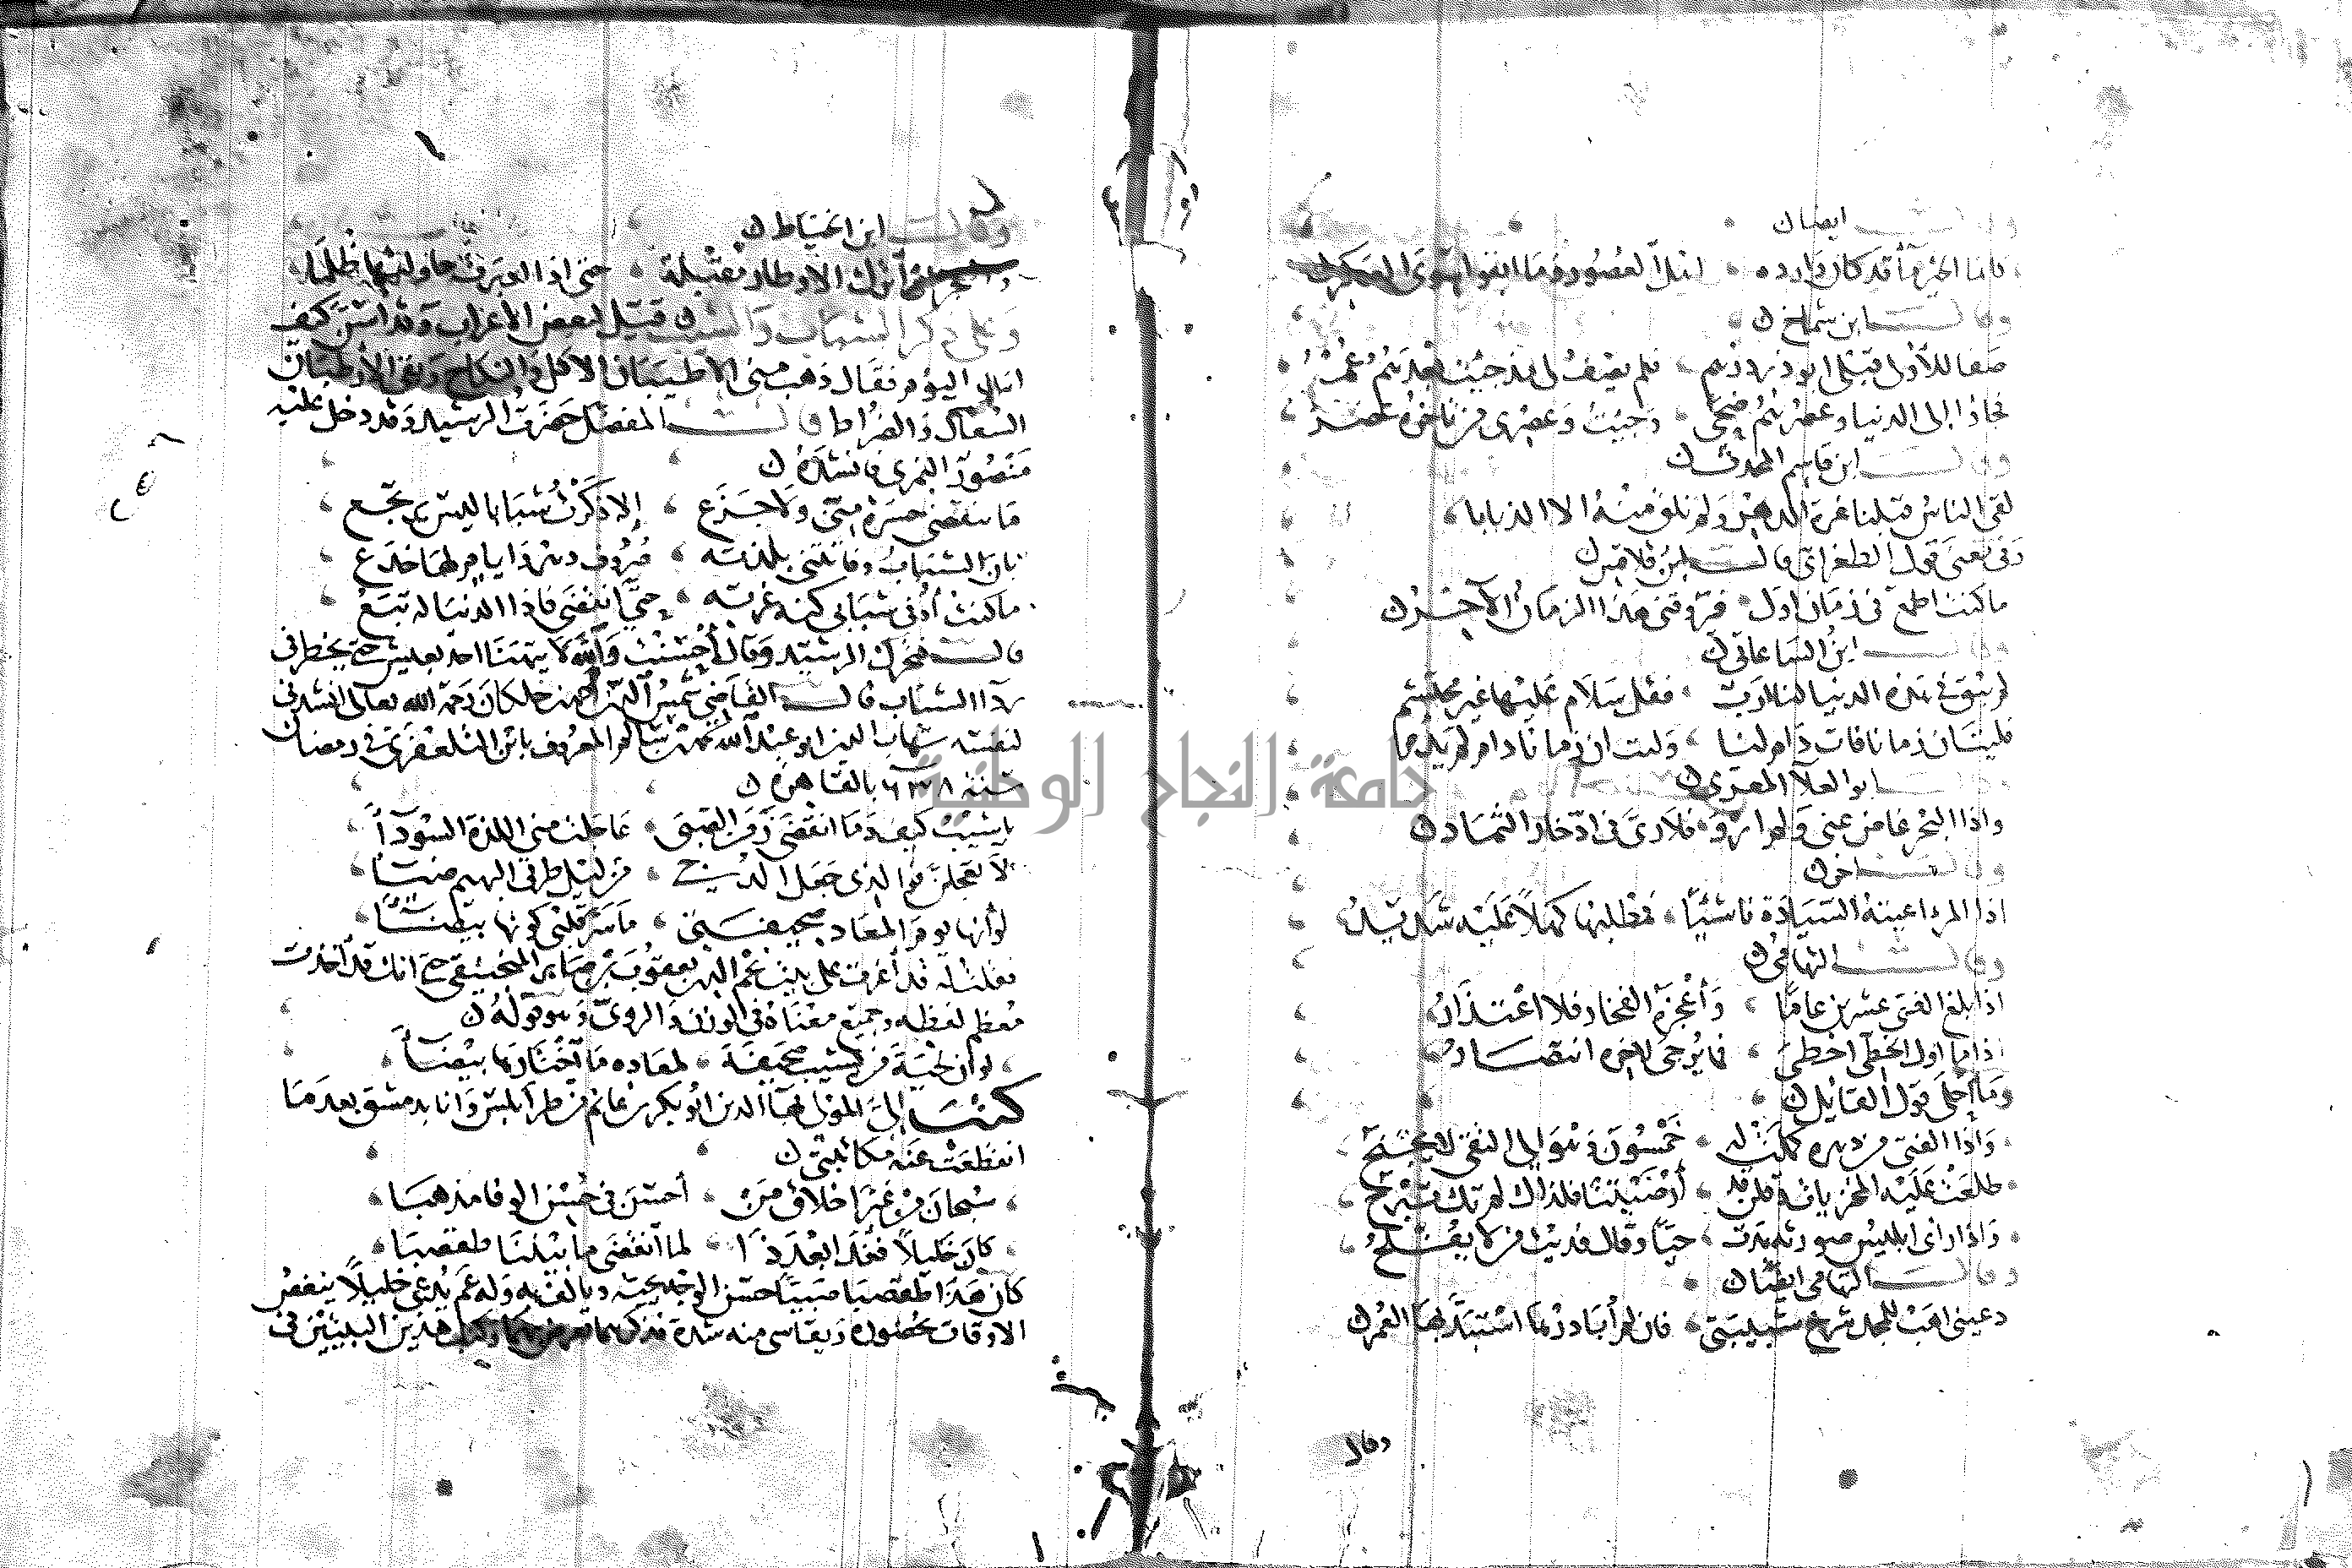 وقال ايضا
فانما الخير قد كان وارده لنا العكر
وقال ابن شماخ
صفا للأول قبلي فلم يصف لي مذ جئت بعدهم عمر
فجاؤا إلى الدنيا وعصرهم ضحى وجئت وعصري من تأخره عصر
وقال ابن قاسم المحدث
لقي الناس قبلنا غرة الدهر ولم نلق منه الا الذنابا
وفي معنى قول الطغراي قال ابن قلاقس
ما كنت اطمع في زمان اول فرّوقني هذا الزمان الآخر
وقال ابن الساعاتي
لم يبق في هذه الدنيا لنا ارب فقل سلام عليها غير محتشم
فليت ان زمانا فات دام لنا وليت ان زمانا دام لم يدم
ابو العلا المعري
واذا البحر غاض عني ولم ارو فلا ري في ادخار الثماد
وقال اخر
اذا المرء اعيته السيادة ناشئا فمطلبها كهلا عليه شديد
وقال التهامي
اذا بلغ الفتى عشرين عاما وأعجزه الفخار فلا اعتذار
اذا ما اول الخطي اخطى فما يرجى لاخره انتصار
وما احلى قول القائل
واذا الفتى من دهره كملت له خمسون وهو الى التقى لا يجنح
طلعت عليه المخزيات وقلن قد أرضيتنا فلذاك لم تك تبرح
واذا رأى ابليس صورته بدت حيا وقال فديت من لا يفلح
وقال التهامي ايضا
دعيني اهب للمجد شرخ شبيبتي فان لم أبادرها استبد بها العمر
وقال
وقال ابن الخياط
أترك الاوطار مقبلة حتى اذا ادبرت حاولتها طلبا
وعلى ذكر الشباب والشيب قيل لبعض الأعراب وقد اسن كيف
انت اليوم فقال ذهب مني الاطيبان الاكل والنكاح وبقي الأرطبان
السعال والضراط قال المفضل حضرت الرشيد وقد دخل عليه
منصور النمري فانشده
ما تنقضي حسرة مني ولا جزع إلا ذكرت شبابا ليس يرتجع
بان الشباب وفاتتني بلذته صروف دهر وايام لها خدع
ما كنت أوفي شبابي كنه غرته حتى انقضى فاذا الدنيا له تبع
قال فتحرك الرشيد وقال أحسنت والله لا يتهنا احد بعيش حتى يخطر في
ردا الشباب قال القاضي شمس الدين أحمد بن خلكان رحمه الله تعالى انشدني
لنفسه شهاب الدين ابو عبد الله محمد بن سالم المعروف بابن التلعفري في رمضان
سنة ٦٣٨ بالقاهرة
يا شيب كيف وما انقضى زمن الصبى عاجلت مني اللمة السودآ
لا تعجلن فوالذي جعل الدجى من ليل طرتي البهيم ضيآ
لو أنها يوم المعاد صحيفتي ما سر قلبي كونها بيضآ
فقلت له قد أغرت على بيت نجم الدين يعقوب بن صابر المنجنيقي حتى انك قد اخذت
معظم لفظه وجميع معناه في الوزن والروي وهو قوله
لو أن لحية من يشيب صحيفة لمعاده ما اختارها بيضآ
كتبت إلى المولى بهآ الدين ابو بكر بن غانم من طرابلس وانا بدمشق بعد ما
انقطعت عنه مكاتبتي
سبحان من غير اخلاق من أحسن في حسن الوفا مذهبا
كان خليلا فغدا بعد ذا لما انقضى ما بيننا طقصبا
كان هذا طقصبا صبيا حسن الوجه يحبه ويألف به وله عم يدعى خليلا ينغص
الاوقات بحضوره ويقاسي منه شدة هذين البيتين في
جامعة النجاح الوطنية